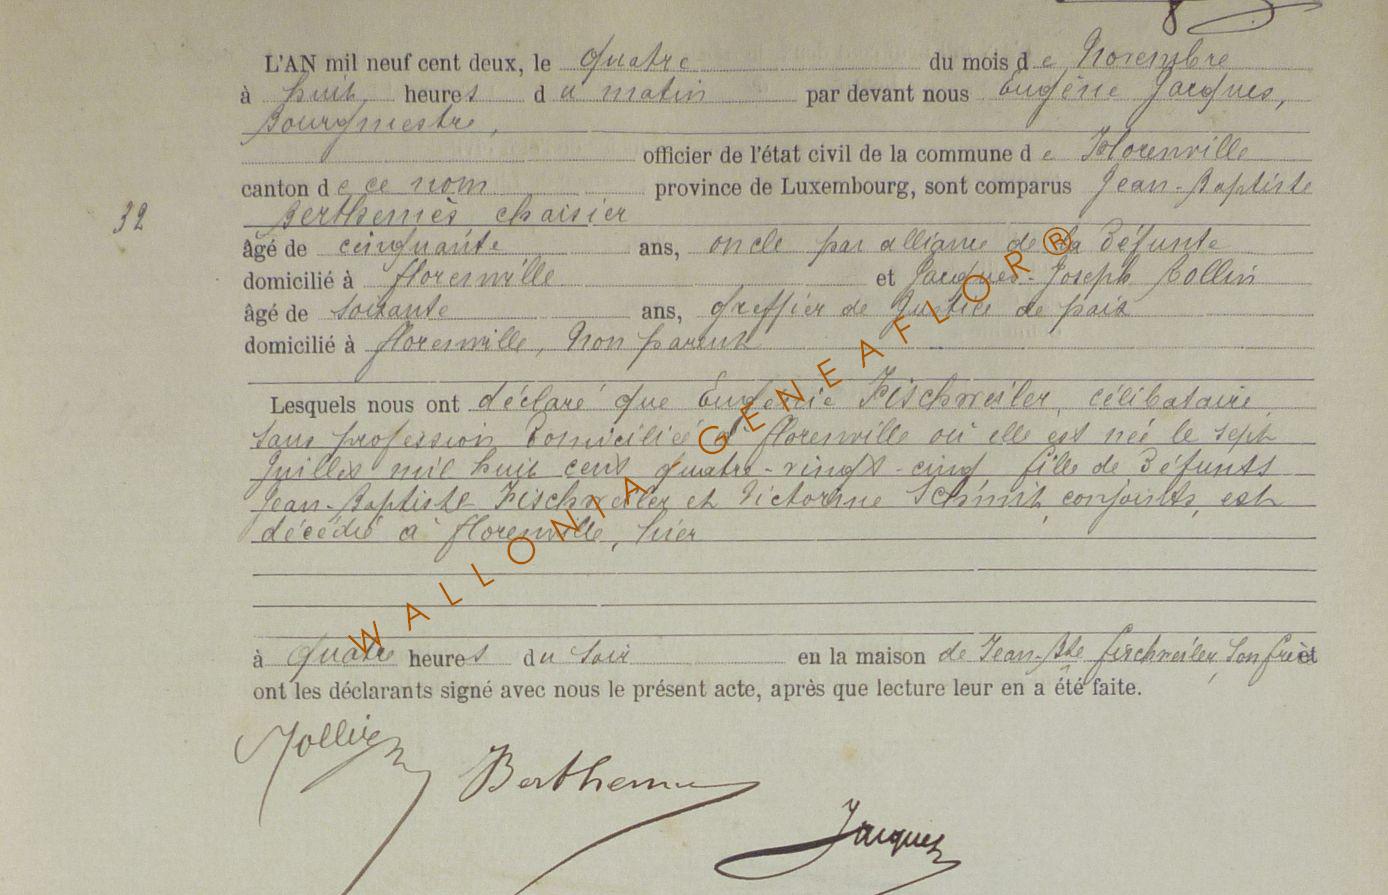 L'AN mil neuf cent deux, le quatre du mois de Novembre
à huit heures du matin par devant nous Eugène Jacques,
Bourgmestre,
officier de l'état civil de la commune de Florenville
canton de ce nom province de Luxembourg, sont comparus Jean-Baptiste
chaisier
32
âgé de cinquante ans, oncle par alliance de la Défunte
domicilié à florenville et Jacques-Joseph Collin
âgé de soixante ans, Greffier de Justice de paix
domicilié à florenville, Non parent
Lesquels nous ont déclaré que Eugénie Fischweiler, célibataire,
sans profession Domiciliée à florenville où elle est née le sept
Juillet mil huit cent quatre-vingt-cinq fille de Défunts
Jean-Baptiste Fischweiler et Victorine Schmit, conjoints, est
décédée à florenville, hier
à quatre heures du soir en la maison de Jean-Bte fischweiler, son frère et
ont les déclarants signé avec nous le présent acte, après que lecture leur en a été faite.
Jacques
WALLONIA GENEAFLOR®